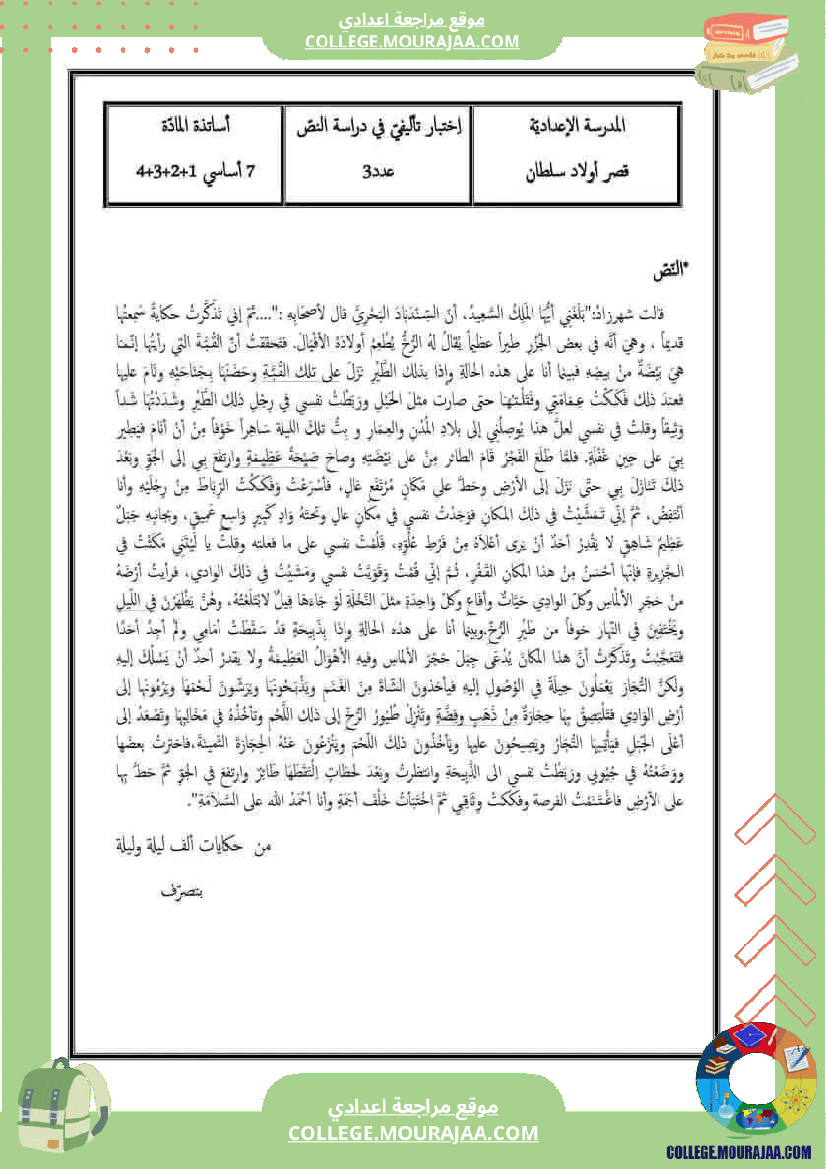 موقع مراجعة اعدادي
COLLEGE.MOURAJAA.COM
المدرسة الإعداديّة
قصر أولاد سلطان
إختبار تأليفيّ في دراسة النصّ
عدد3
أساتذة المادّة
7 أساسي 1+2+3+4
*النّصّ
قالت شهرزادُ:"بَلَغَنِي أيُّهَا المَلِكُ السَّعِيدُ، أنّ السِّنْدَبَادَ البَحْرِيَّ قال لأصحَابِهِ :"....ثمّ إني تذكَّرتُ حكايةً سَمِعتُهَا
قديماً ، وهيَ أنَّه في بعض الجُزُرِ طيراً عظيماً يُقالُ لهُ الرُّخُّ يُطْعِمُ أولادَهُ الأفْيَالَ. فتحققتُ أنّ القُبَّةَ التي رأيتُها إنّمَا
هيَ بَيْضَةٌ منْ بيضِهِ فبينما أنا على هذه الحالةِ وإذا بذلك الطَّيْرِ نزَلَ على تلك القُبَّةِ وحَضَنَهَا بِجَنَاحَيْهِ ونَامَ عليها
فعندَ ذلك فَكَكْتُ عِمَامَتِي وفَتَلْتُهَا حتى صارت مثلَ الحَبْلِ وربَطْتُ نفسي في رِجْلِ ذلك الطَّيْرِ وشَدَدْتُهَا شَداًّ
وَثِيقاً وقلتُ في نفسي لعلَّ هذا يُوصِلُنِي إلى بلادِ المُدُنِ والعِمَارِ و بِتُّ تلكَ الليلةَ سَاهِراً خَوْفاً مِنْ أنْ أنَامَ فيَطِير
بِيَ على حِينِ غَفْلَةٍ. فلمَّا طَلَعَ الفَجْرُ قامَ الطائر مِنْ على بَيْضَتِهِ وصاحَ صَيْحَةً عَظِيمَةً وارتفَعَ بِي إلى الجَوِّ وبَعْدَ
ذلكَ تَنَازَلَ بِي حتَّى نَزَلَ إلى الأرْضِ وحَطَّ على مَكَانٍ مُرْتَفَعٍ عَالٍ، فأسْرَعْتُ وفَكَكْتُ الرِّبَاطَ مِنْ رِجْلَيْهِ وأنا
أنْتَفِضُ، ثمَّ إنّي تَمَشَّيْتُ في ذلكَ المكانِ فوَجَدْتُ نفسي في مكانٍ عالٍ وتحتَهُ وَادٍ كَبِيرٍ وَاسِعٍ عَمِيقٍ، وبجَانبِهِ جَبَلٌ
عَظِيمٌ شَاهِقٍ لا يَقْدِرُ أحَدٌ أنْ يرَى أعْلاَهُ مِنْ فَرَطِ عُلُوِّهِ، فَلُمْتُ نفسي على ما فعلته وقلتُ يا لَيْتَنِي مَكَثْتُ في
الجَزِيرةِ فإنّهَا أحْسَنُ مِنْ هذا المكَانِ القَفْرِ، ثُمَّ إنّي قُمْتُ وقَوَّيْتُ نفسي ومَشَيْتُ في ذلكَ الوادي، فرأيتُ أرْضَهُ
منْ حَجَرِ الألماسِ وكلّ الوادِي حَيَّاتٌ وأفَاعٍ وكلّ واحِدَةٍ مثلَ النَّخْلَةِ لَوْ جَاءَهَا فِيلٌ لابْتَلَعَتْهُ، وهُنَّ يَظْهَرْنَ في اللّيلِ
ويَخْتَفِينَ في النَّهارِ خوفاً من طَيْرِ الرُّخِّ.وبينما أنا على هذه الحالةِ وإذَا بِذَبِيحَةٍ قدْ سَقَطَتْ أمَامِي ولمْ أجِدْ أحَدًا
فتَعَجَّبْتُ وتَذَكّرْتُ أنَّ هذا المكانَ يُدْعَى جبَلَ حَجَرَ الألماسِ وفيهِ الأهْوَالُ العَظِيمَةُ ولا يقدرُ أحدٌ أنْ يَسْلُكَ إليهِ
ولكنَّ التُّجّارَ يَعْمَلُونَ حِيلَةً في الوُصُولِ إليهِ فيأخذونَ الشَّاةَ مِنَ الغَنَمِ ويَذْبَحُونَهَا ويَرُشّونَ لَحْمَهَا ويَرْمُونَها إلى
أرْضِ الوَادِي فتَلْتَصِقُ بِهَا حِجَارَةٌ مِنْ ذَهَبٍ وفِضَّةٍ وتَنْزِلُ طُيُورُ الرُّخِّ إلى ذلك اللَّحْمِ وتَأخُذُهُ في مَخَالِبِهَا وتَصْعَدُ إلى
أعْلَى الجَبَلِ فيَأتِيهَا التُّجّارُ ويَصِيحُونَ عليها ويَأخُذُونَ ذلكَ اللّحْمَ ويَنْزِعُونَ عَنْهُ الحِجَارَةَ الثّمِينَةَ،فاخترْتُ بعضَها
ووَضَعْتُهُ في جُيُوبِي وربَطْتُ نفسي الى الذَّبِيحَةِ وانتظرتُ وبَعْدَ لحظاتٍ اِلْتَقَطَهَا طَائِرٌ وارتفعَ في الجَوِّ ثمَّ حَطَّ بِها
على الأرْضِ فاغْتَنَمْتُ الفرصة وفككتُ وِثَاقِي ثمَّ اخْتَبَأتُ خَلْفَ أجَمَةٍ وأنا أحْمَدُ الله على السَّلاَمَةِ".
من حكايات ألف ليلة وليلة
بتصرّف
موقع مراجعة اعدادي
COLLEGE.MOURAJAA.COM
COLLEGE.MOURAJAA.COM